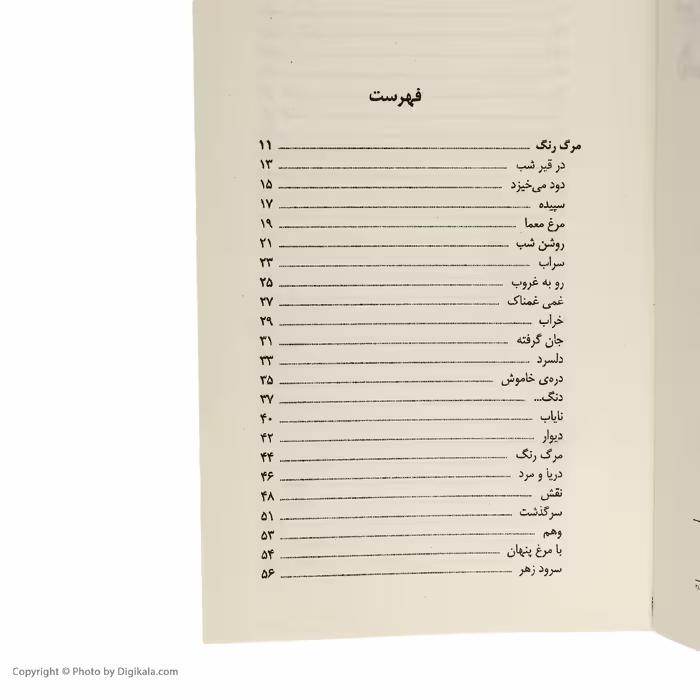 فهرست
مرگ رنگ ۱۱
در قیر شب ۱۳
دود می‌خیزد ۱۵
سپیده ۱۷
مرغ معما ۱۹
روشن شب ۲۱
سراب ۲۳
رو به غروب ۲۵
غمی غمناک ۲۷
خراب ۲۹
جان گرفته ۳۱
دلسرد ۳۳
دره‌ی خاموش ۳۵
دنگ... ۳۷
نایاب ۴۰
دیوار ۴۲
مرگ رنگ ۴۴
دریا و مرد ۴۶
نقش ۴۸
سرگذشت ۵۱
وهم ۵۳
با مرغ پنهان ۵۴
سرود زهر ۵۶
Copyright © Photo by Digikala.com